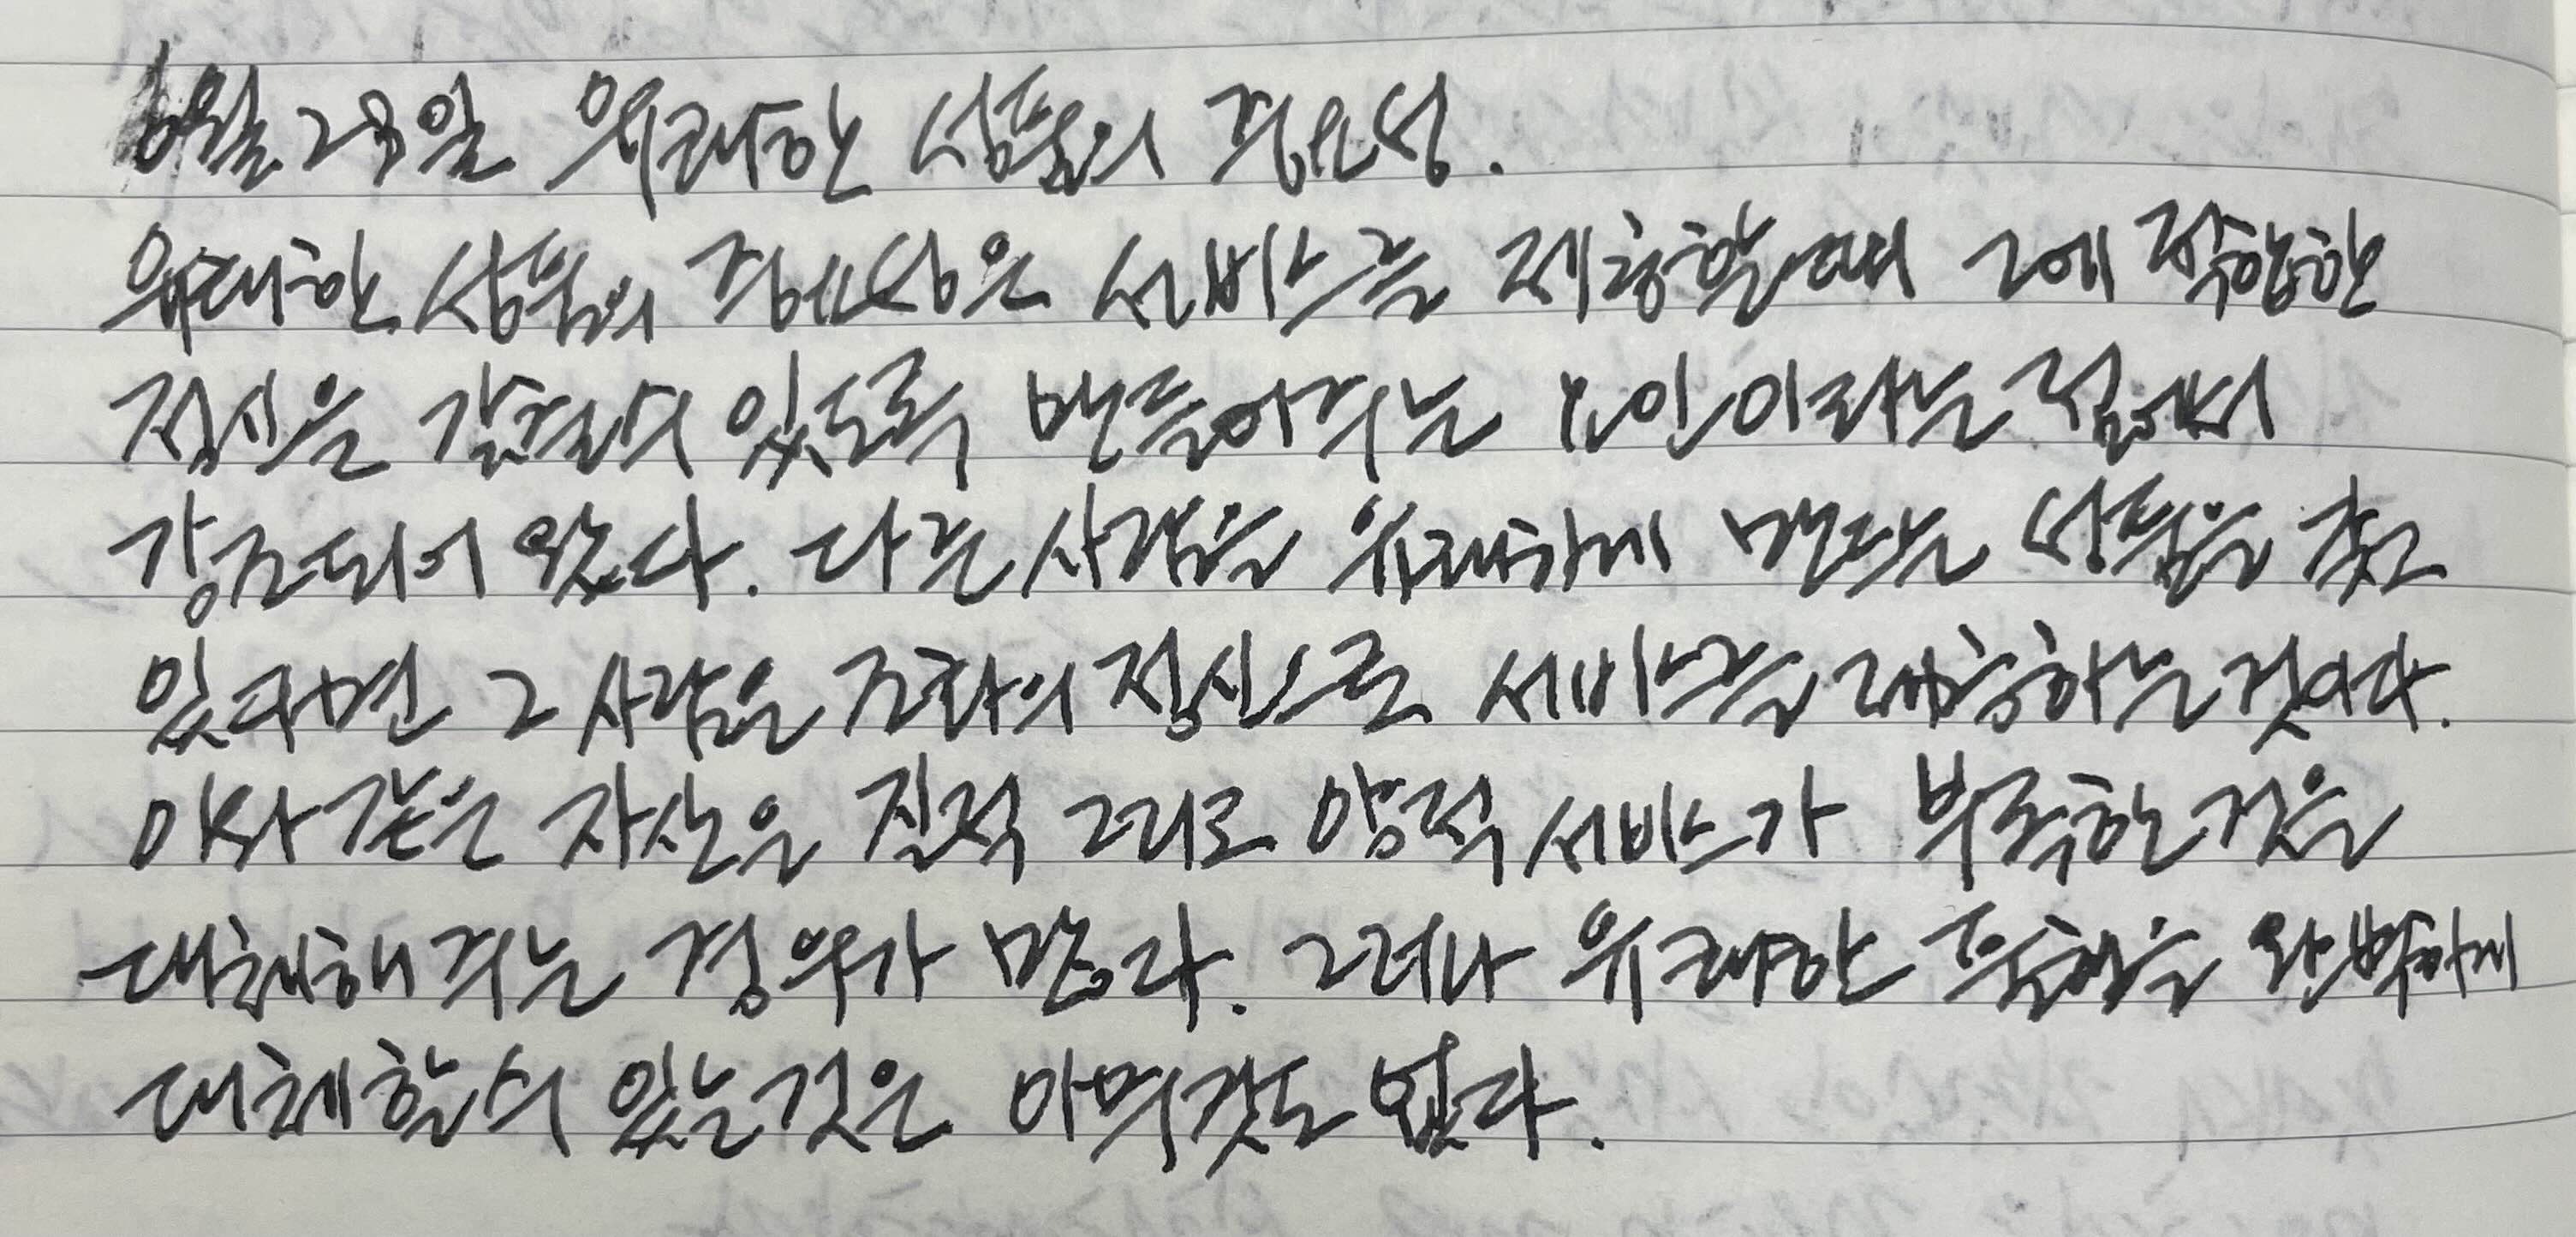 6월 28일 위대한 성품의 중요성.
위대한 성품의 중요성은 서비스를 제공할때 그에 적합한
정신을 갖출수 있도록 만들어주는 요인이라는 점에서
강조되어 있다. 다른 사람을 위대하게 만드는 성품을 갖고
있다면 그 사람은 조화의 정신으로 서비스를 제공하는것이다.
이와 같은 자산은 질적 그리고 양적 서비스가 부족한것을
대체해 주는 경우가 많다. 그러나 위대한 품성을 완벽하게
대체할수 있는것은 아무것도 없다.